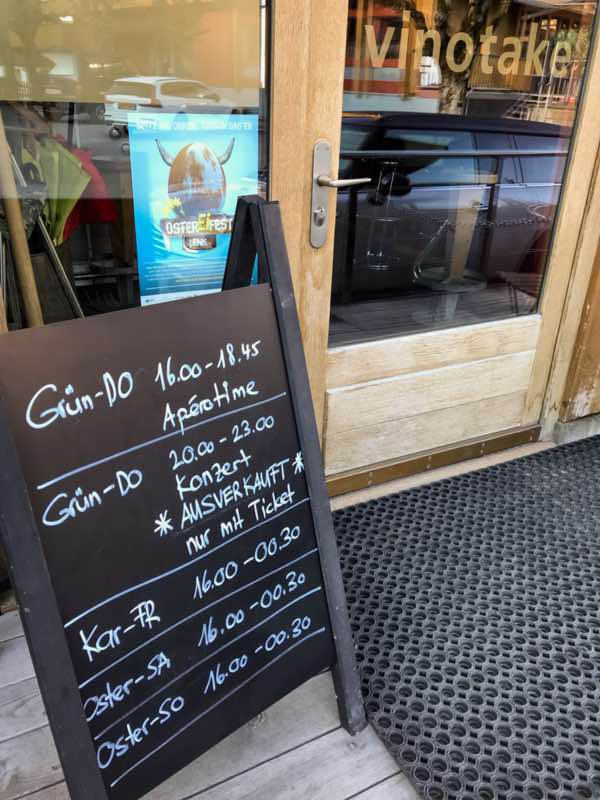 vinotake
OSTEREIFEST
LENK
Grün-DO 16.00-18.45
Apérotime
Grün-DO 20.00-23.00
Konzert
* AUSVERKAUFT *
nur mit Ticket
Kar-FR 16.00-00.30
Oster-SA 16.00-00.30
Oster-SO 16.00-00.30